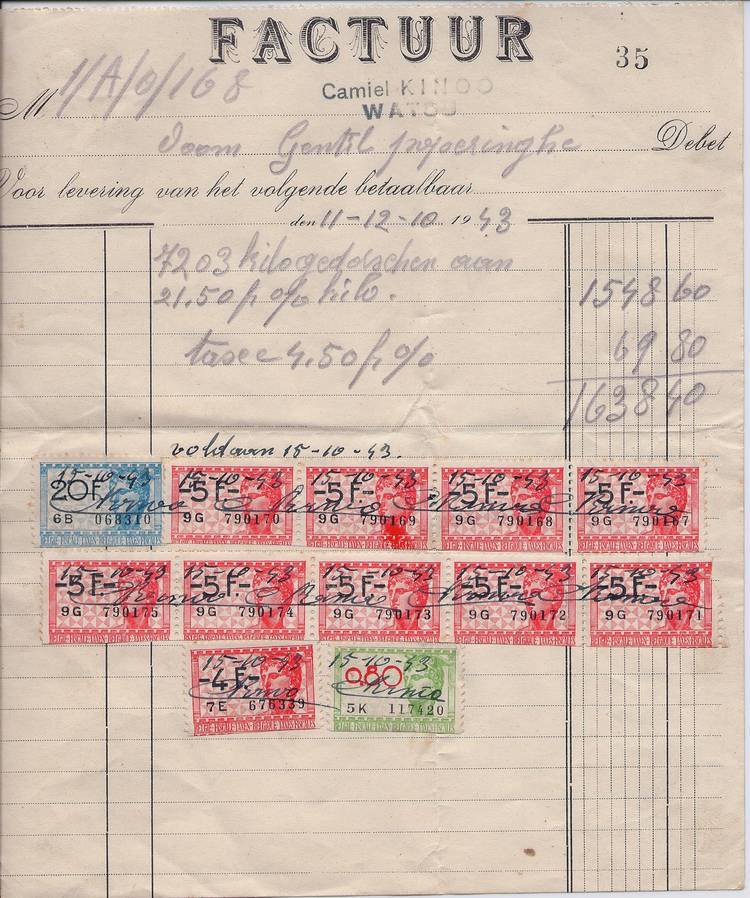 FACTUUR
35
M 1/A/0/168
Camiel KINOO
WATOU
Gentil
Debet
Voor levering van het volgende betaalbaar
den 11-12-10 1943
7203 kilo gedorschen aan
21.50 fr % kilo. 1548 60
taxe 4.50 fr % 69 80
1638 40
voldaan 15-10-43.
15-10-43 15-10-43 15-10-43 15-10-43 15-10-43
20F -5F- -5F- -5F- -5F-
Kinoo Kinoo Kinoo Kinoo
6B 068310 9G 790170 9G 790169 9G 790168 9G 790167
BELGIE-FISCALE TAXES-BELGIQUE-TAXES FISCALES
15-10-43 15-10-43 15-10-43 15-10-43 15-10-43
-5F- -5F- -5F- -5F- -5F-
Kinoo Kinoo Kinoo Kinoo
9G 790175 9G 790174 9G 790173 9G 790172 9G 790171
15-10-43 15-10-43
-4F- 0.80
Kinoo Kinoo
7E 676339 5K 117420